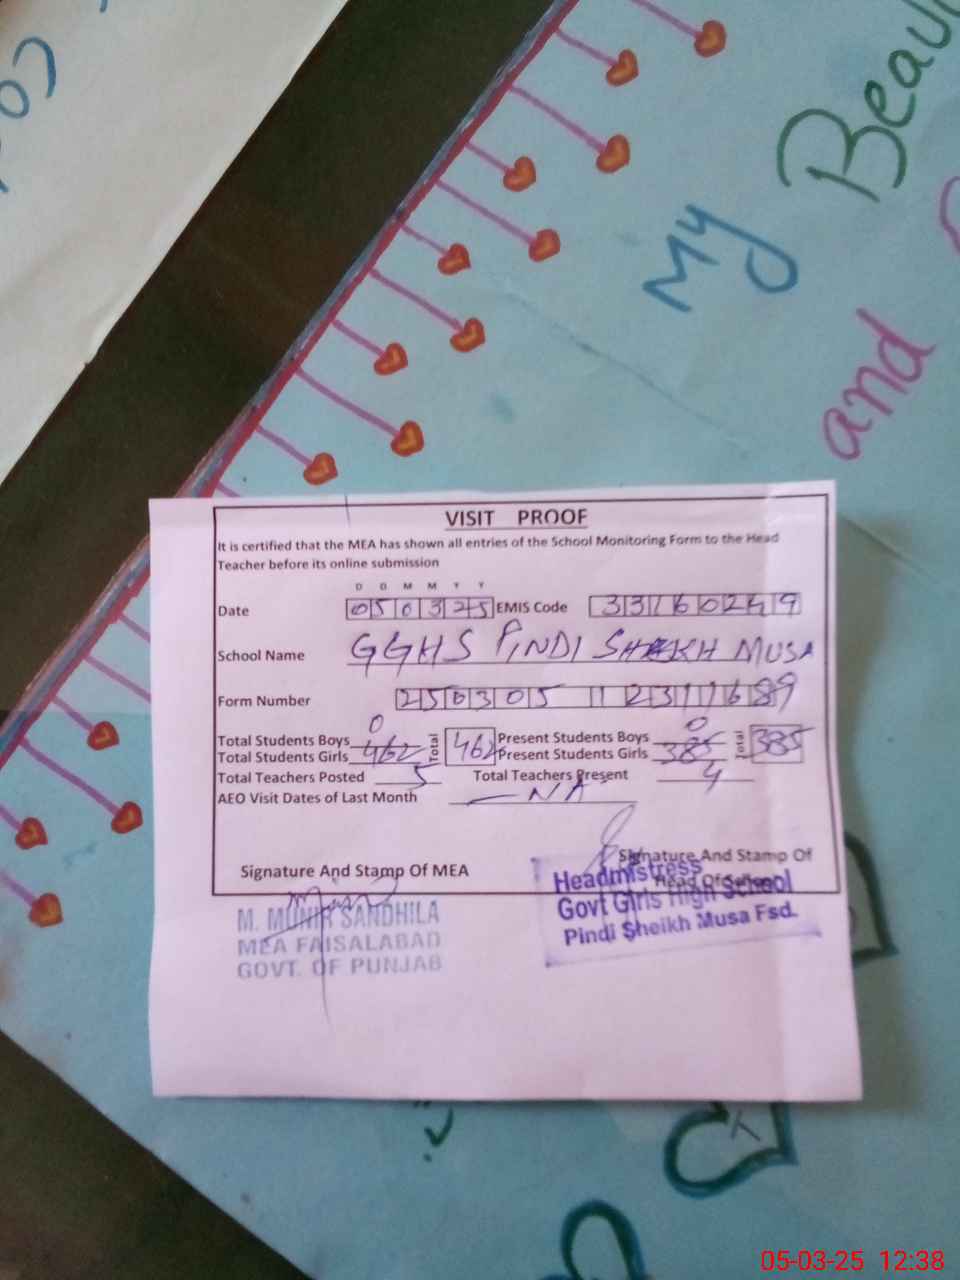 My Beau
and
VISIT PROOF
It is certified that the MEA has shown all entries of the School Monitoring Form to the Head
Teacher before its online submission
D D M M Y Y
Date 050325 EMIS Code 33160249
School Name GGHS PINDI SHEIKH MUSA
Form Number 250305 1231 1689
Total Students Boys 0 Total 462 Present Students Boys 0 Total 385
Total Students Girls 462 Present Students Girls 385
Total Teachers Posted 5 Total Teachers Present 4
AEO Visit Dates of Last Month — NA
Signature And Stamp Of MEA
Signature And Stamp Of
Head Of School
M. MUNIR SANDHILA
MEA FAISALABAD
GOVT. OF PUNJAB
Headmistress
Govt Girls High School
Pindi Sheikh Musa Fsd.
05-03-25 12:38